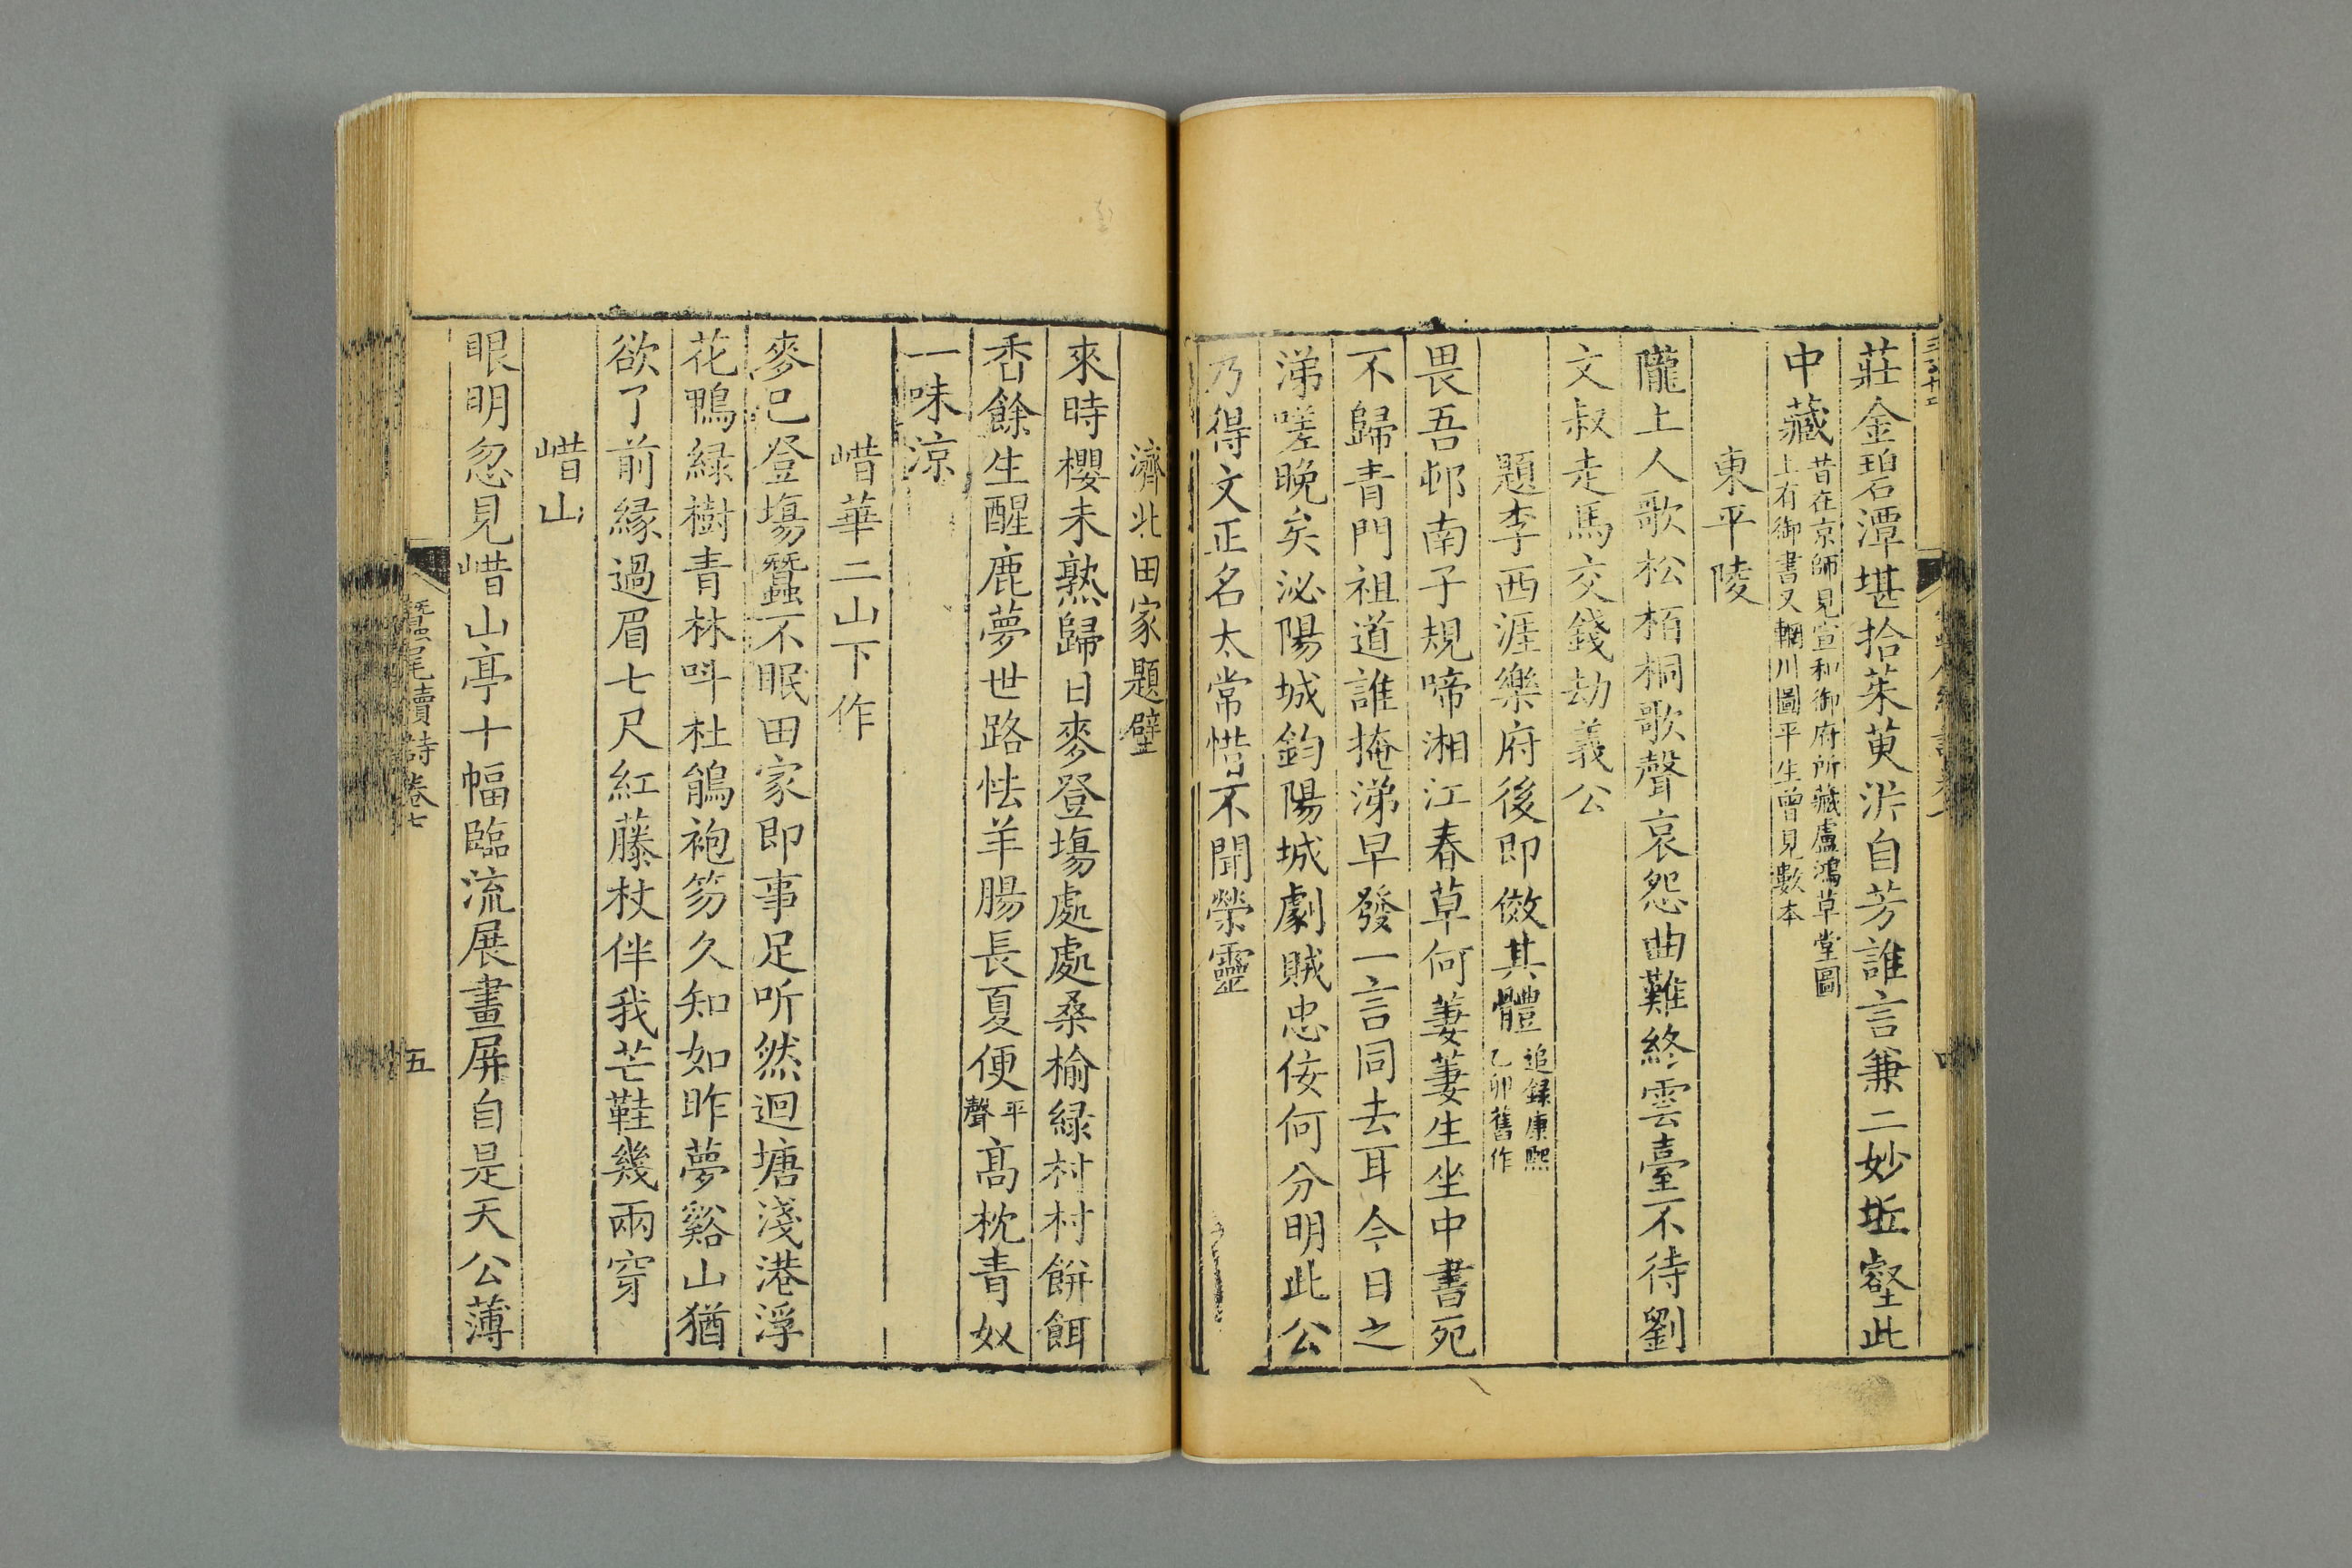 莊金碧潭堪拾茱萸沜自芳誰言兼二妙坵壑此
中藏昔在京師見宣和御府所藏盧鴻草堂圖
上有御書又輞川圖平生曾見數本
東平陵
隴上人歌松栢桐歌聲哀怨曲難終雲臺不待劉
文叔走馬交錢劫義公
題李西涯樂府後即倣其體追録康熙
乙卯舊作
畏吾邨南子規啼湘江春草何萋萋生坐中書死
不歸青門祖道誰掩涕早發一言同去耳今日之
涕嗟晚矣泌陽城鈞陽城劇賊忠佞何分明此公
乃得文正名太常惜不聞榮靈
濟北田家題壁
來時櫻未熟歸日麥登塲處處桑榆緑村村餅餌
香餘生醒鹿夢世路怯羊腸長夏便平聲高枕青奴
一味涼
㟙華二山下作
麥已登塲蠶不眠田家即事足听然迴塘淺港浮
花鴨緑樹青林呌杜鵑袍笏久知如昨夢谿山猶
欲了前緣過眉七尺紅藤杖伴我芒鞋幾兩穿
㟙山
眼明忽見㟙山亭十幅臨流展畫屏自是天公薄
蠶尾續詩卷七
五